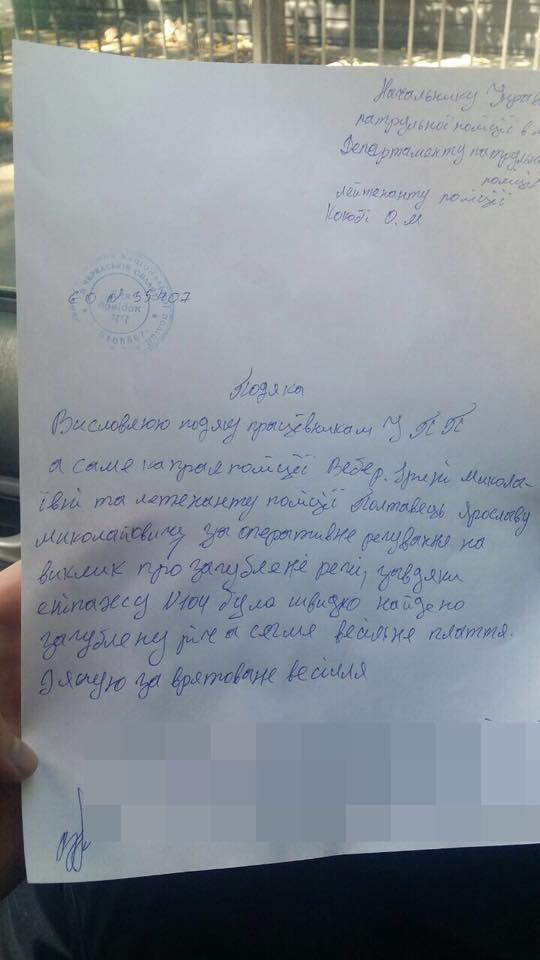 Начальнику Управ
патрульної поліції в м
Департаменту патрульн
поліції
лейтенанту поліції
Коюбі О.М
ЄО № 35407
Подяка
Висловлюю подяку працівникам УПП
а саме капралполіції Вебер Ірині Микола-
ївні та летенанту поліції Полтавець Ярославу
Миколайовичу за оперативне регування на
виклик про загублене речі, завдяки
екіпажсу N104 було швидко найдено
загублену річ а саме весільне плаття.
Дякую за врятоване весілля